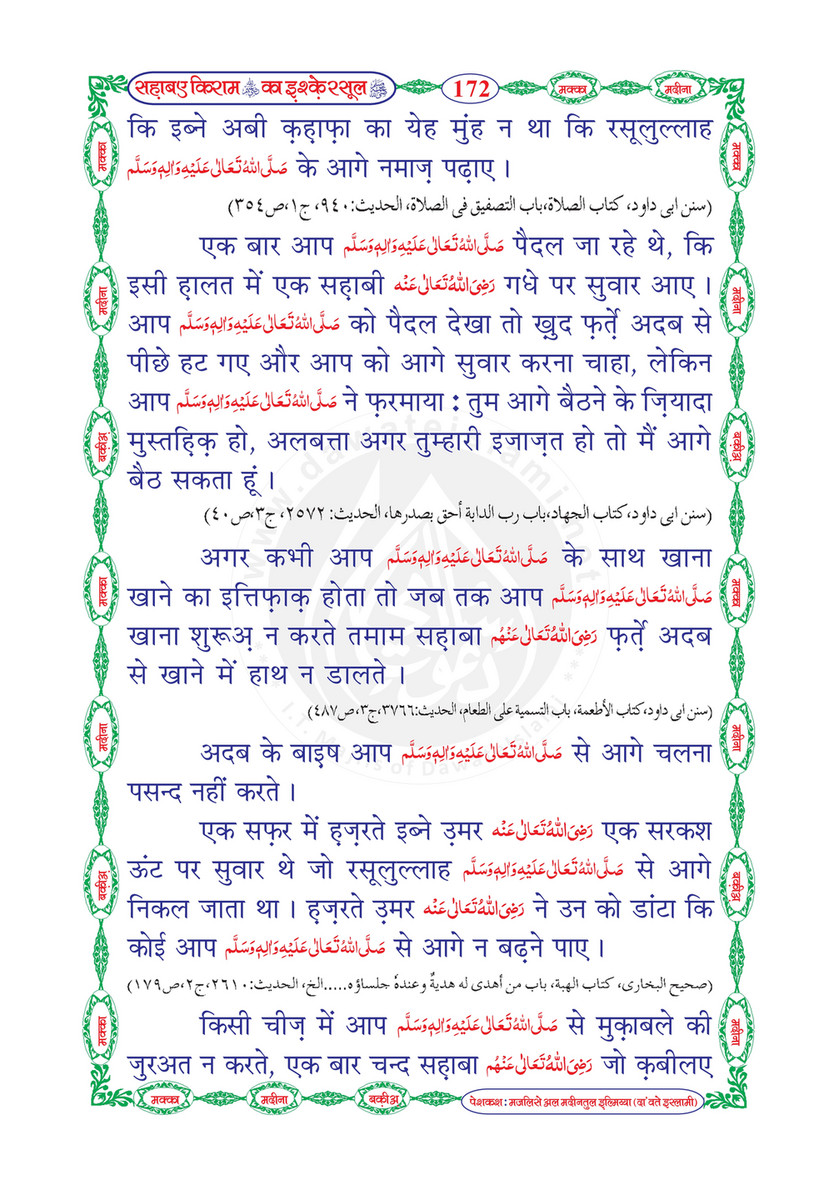 सहाबए किराम का इश्के रसूल ﷺ
172
मक्का
मदीना
कि इब्ने अबी क़ह़ाफ़ा का येह मुंह न था कि रसूलुल्लाह
صَلَّى اللهُ تَعَالٰى عَلَيْهِ وَاٰلِهٖ وَسَلَّم के आगे नमाज़ पढ़ाए ।
(سنن ابی داود، کتاب الصلاة،باب التصفیق فی الصلاة، الحدیث:٩٤٠، ج١،ص٣٥٤)
एक बार आप صَلَّى اللهُ تَعَالٰى عَلَيْهِ وَاٰلِهٖ وَسَلَّم पैदल जा रहे थे, कि
इसी ह़ालत में एक सह़ाबी رَضِىَ اللهُ تَعَالٰى عَنْه गधे पर सुवार आए ।
आप صَلَّى اللهُ تَعَالٰى عَلَيْهِ وَاٰلِهٖ وَسَلَّم को पैदल देखा तो ख़ुद फ़र्त़े अदब से
पीछे हट गए और आप को आगे सुवार करना चाहा, लेकिन
आप صَلَّى اللهُ تَعَالٰى عَلَيْهِ وَاٰلِهٖ وَسَلَّم ने फ़रमाया : तुम आगे बैठने के ज़ियादा
मुस्तह़िक़ हो, अलबत्ता अगर तुम्हारी इजाज़त हो तो मैं आगे
बैठ सकता हूं ।
(سنن ابی داود،کتاب الجهاد،باب رب الدابة أحق بصدرها، الحدیث: ٢٥٧٢، ج٣،ص٤٠)
अगर कभी आप صَلَّى اللهُ تَعَالٰى عَلَيْهِ وَاٰلِهٖ وَسَلَّم के साथ खाना
खाने का इत्तिफ़ाक़ होता तो जब तक आप صَلَّى اللهُ تَعَالٰى عَلَيْهِ وَاٰلِهٖ وَسَلَّم
खाना शुरूअ़ न करते तमाम सह़ाबा رَضِىَ اللهُ تَعَالٰى عَنْهُم फ़र्त़े अदब
से खाने में हाथ न डालते ।
(سنن ابی داود،کتاب الأطعمة، باب التسمیة علی الطعام، الحدیث:٣٧٦٦،ج٣،ص٤٨٧)
अदब के बाइष आप صَلَّى اللهُ تَعَالٰى عَلَيْهِ وَاٰلِهٖ وَسَلَّم से आगे चलना
पसन्द नहीं करते ।
एक सफ़र में ह़ज़रते इब्ने उ़मर رَضِىَ اللهُ تَعَالٰى عَنْه एक सरकश
ऊंट पर सुवार थे जो रसूलुल्लाह صَلَّى اللهُ تَعَالٰى عَلَيْهِ وَاٰلِهٖ وَسَلَّم से आगे
निकल जाता था । ह़ज़रते उ़मर رَضِىَ اللهُ تَعَالٰى عَنْه ने उन को डांटा कि
कोई आप صَلَّى اللهُ تَعَالٰى عَلَيْهِ وَاٰلِهٖ وَسَلَّم से आगे न बढ़ने पाए ।
(صحیح البخاری، کتاب الهبة، باب من أهدى له هديةٌ وعندهٗ جلساؤه.....الخ، الحدیث:٢٦١٠،ج٢،ص١٧٩)
किसी चीज़ में आप صَلَّى اللهُ تَعَالٰى عَلَيْهِ وَاٰلِهٖ وَسَلَّم से मुक़ाबले की
जुरअत न करते, एक बार चन्द सह़ाबा رَضِىَ اللهُ تَعَالٰى عَنْهُم जो क़बीलए
मक्का
मदीना
बक़ीअ़
मक्का
मदीना
बक़ीअ़
मक्का
मक्का
मदीना
बक़ीअ़
मक्का
मदीना
बक़ीअ़
मदीना
मक्का
मदीना
बक़ीअ़
पेशकश : मजलिसे अल मदीनतुल इल्मिय्या (दा'वते इस्लामी)